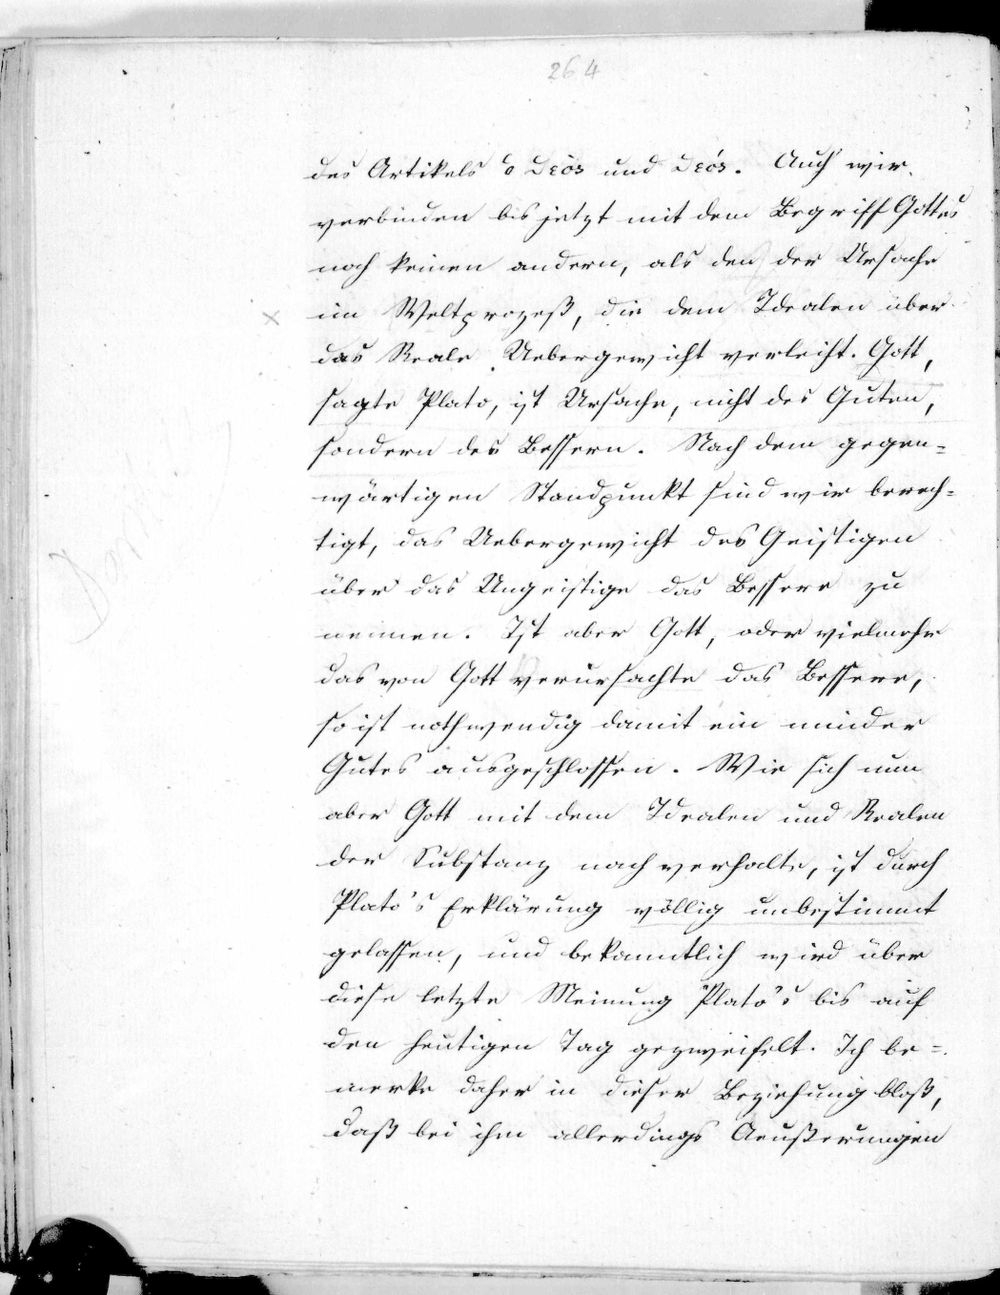 264
des Artikels ὁ θεὸς und θεός. Auch wir
verbinden bis jetzt mit dem Begriff Gottes
noch keinen andern, als den der Ursache
im Weltprozeß, die dem Idealen über
das Reale Uebergewicht verleiht. Gott,
sagte Plato, ist Ursache, nicht des Guten,
sondern des Bessern. Nach dem gegen=
wärtigen Standpunkt sind wir berech=
tigt, das Uebergewicht des Geistigen
über das Ungeistige das Bessere zu
nennen. Ist aber Gott, oder vielmehr
das von Gott verursachte das Bessere,
so ist nothwendig damit ein minder
Gutes ausgeschlossen. Wie sich nun
aber Gott mit dem Idealen und Realen
der Substanz nach verhalte, ist durch
Plato's Erklärung völlig unbestimmt
gelassen, und bekanntlich wird über
diese letzte Meinung Plato's bis auf
den heutigen Tag gezweifelt. Ich be=
merke daher in dieser Beziehung bloß,
daß bei ihm allerdings Aeußerungen